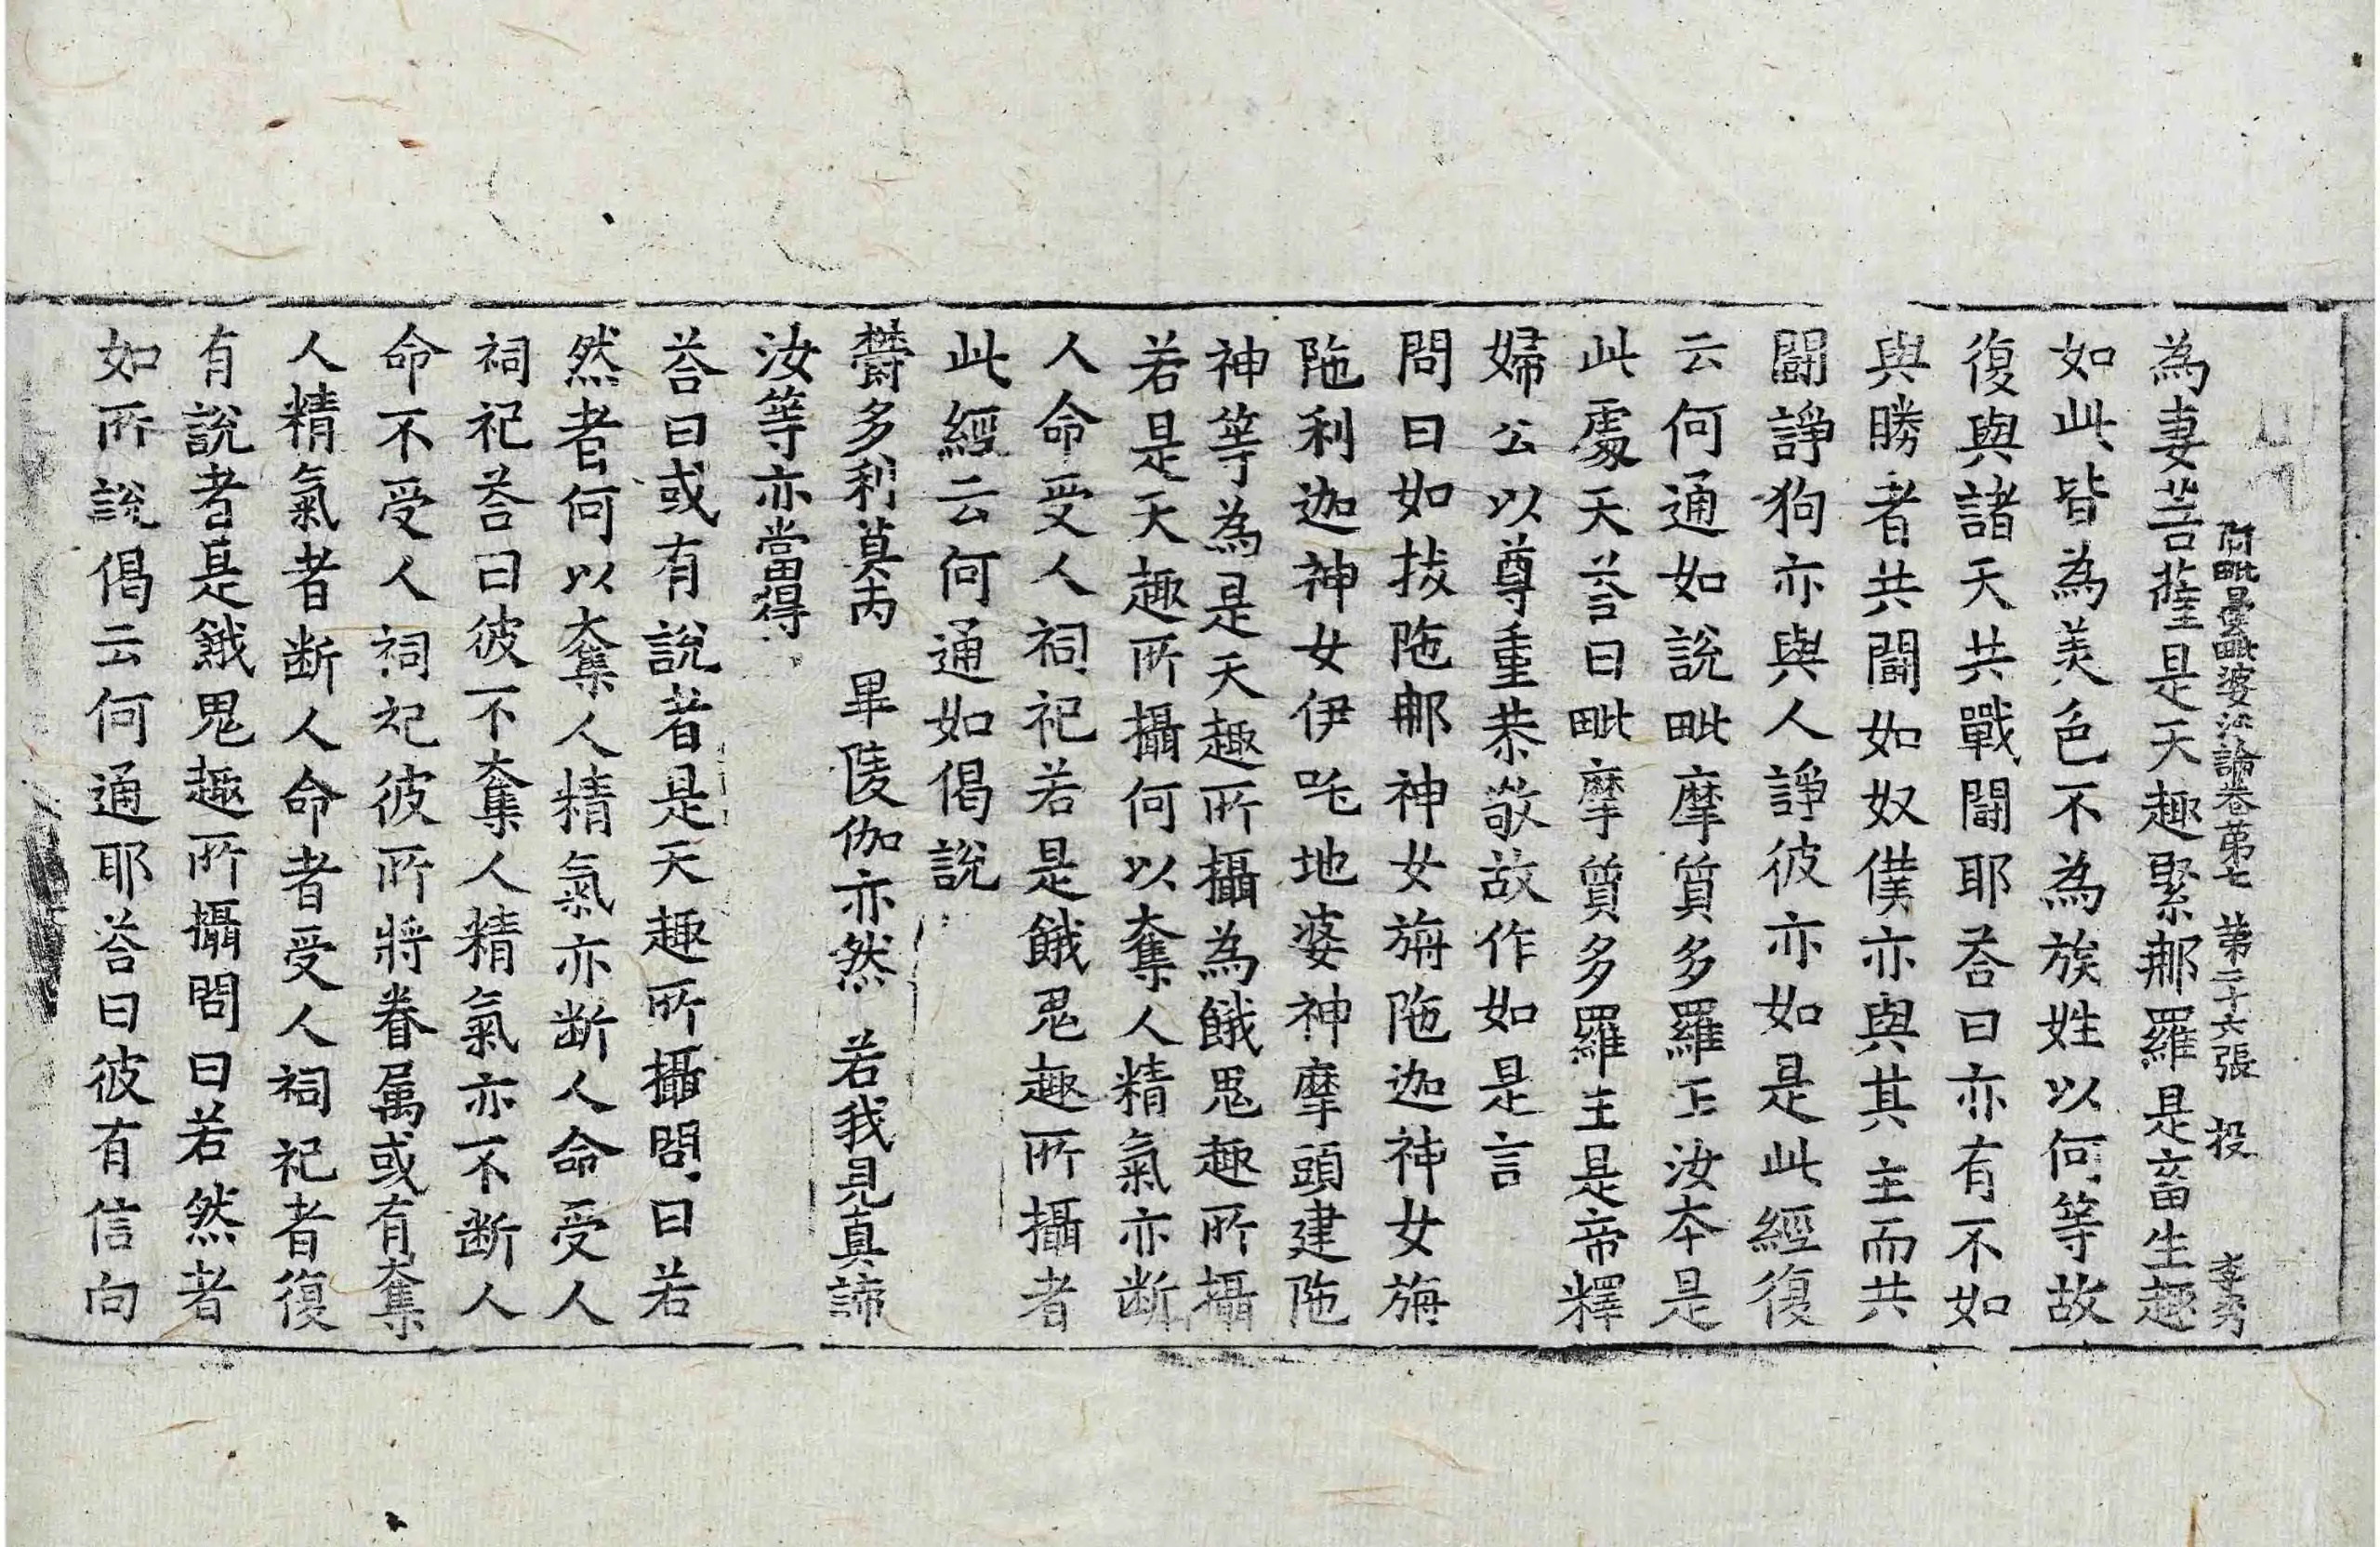 阿毗曇毗婆沙論卷苐七　苐二十六張　投　李秀
為妻菩薩是天趣緊那羅是畜生趣
如此皆為美色不為族姓以何等故
復與諸天共戰鬪耶荅曰亦有不如
與勝者共鬪如奴僕亦與其主而共
鬪諍狗亦與人諍彼亦如是此經復
云何通如說毗摩質多羅王汝本是
此處天荅曰毗摩質多羅王是帝釋
婦公以尊重恭敬故作如是言
問曰如拔陁那神女旃陁迦神女旃
陁利迦神女伊吒地婆神摩頭建陁
神等為是天趣所攝為餓鬼趣所攝
若是天趣所攝何以奪人精氣亦斷
人命受人祠祀若是餓鬼趣所攝者
此經云何通如偈說
欝多利莫丙　畢陵伽亦然　若我見真諦
汝等亦當得
荅曰或有說者是天趣所攝問曰若
然者何以奪人精氣亦斷人命受人
祠祀荅曰彼不奪人精氣亦不斷人
命不受人祠祀彼所將眷属或有奪
人精氣者斷人命者受人祠祀者復
有說者是餓鬼趣所攝問曰若然者
如所說偈云何通耶荅曰彼有信向